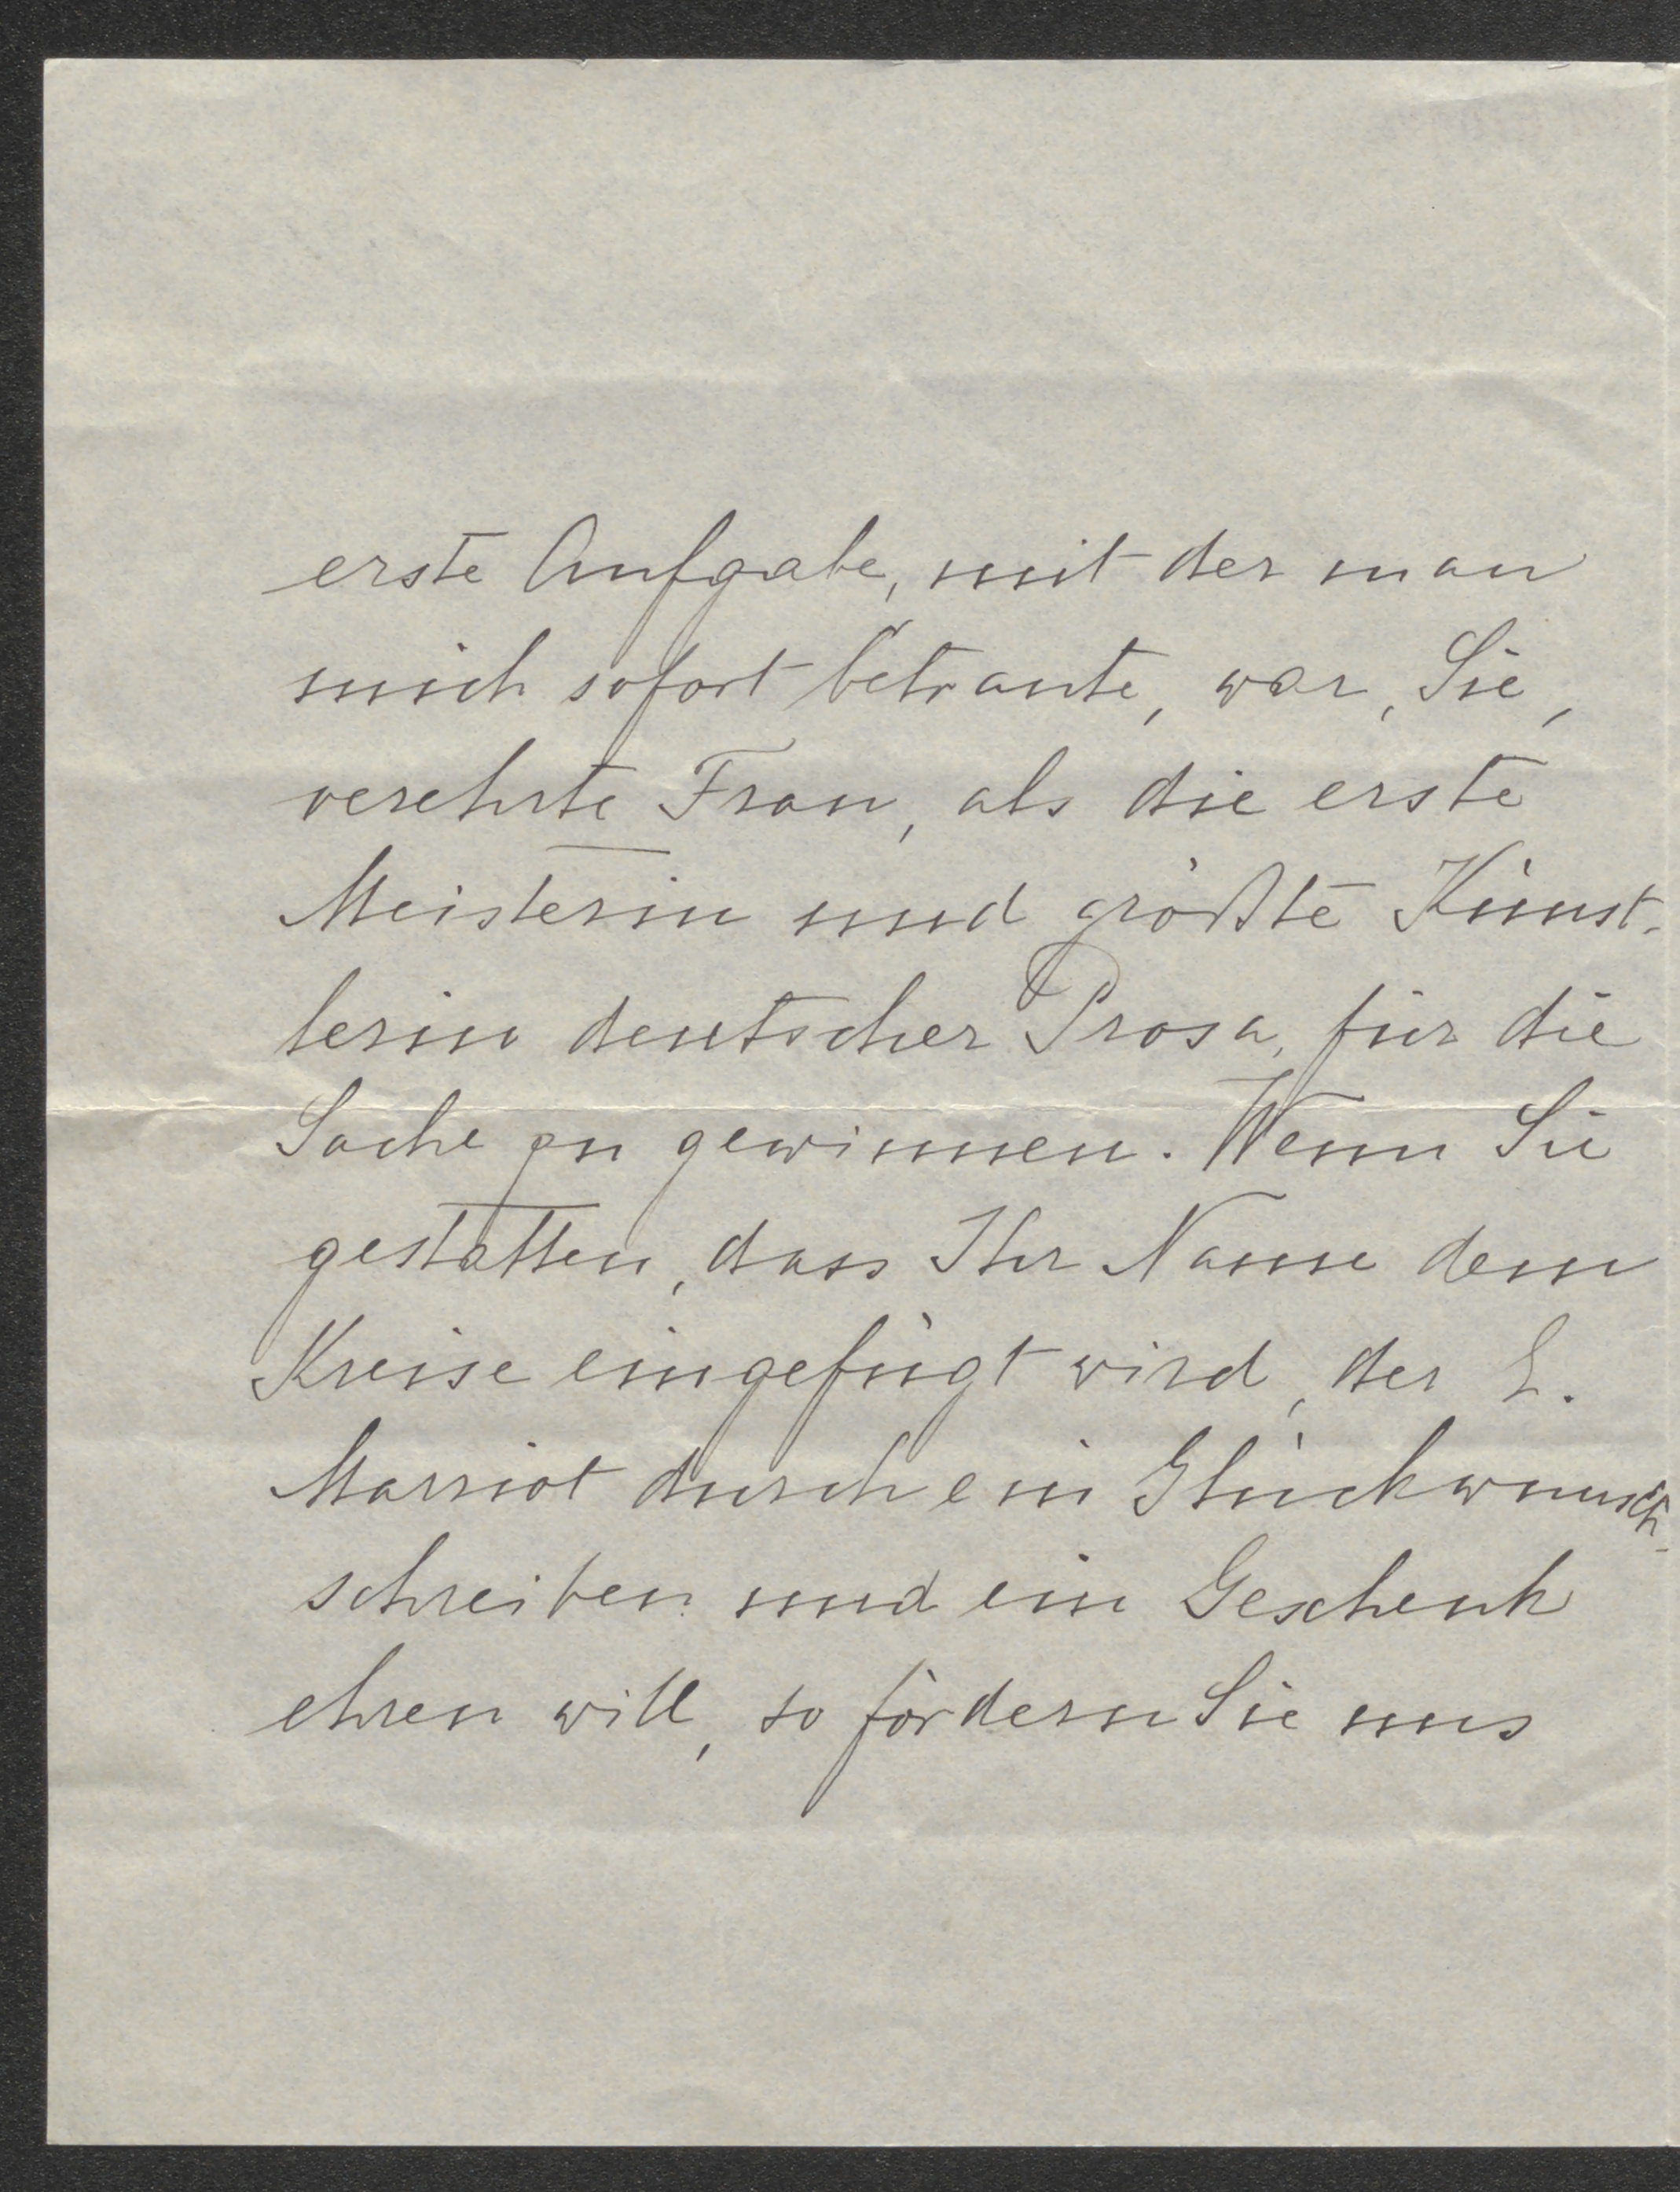 erste Aufgabe, mit der man
mich sofort betraute, war, Sie,
verehrte Frau, als die erste
Meisterin und größte Künst-
lerin deutscher Prosa, für die
Sache zu gewinnen. Wenn Sie
gestatten, dass Ihr Name dem
Kreise eingefügt wird, der E.
Marriot durch ein Glückwunsch-
schreiben und ein Geschenk
ehren will, so fördern Sie uns